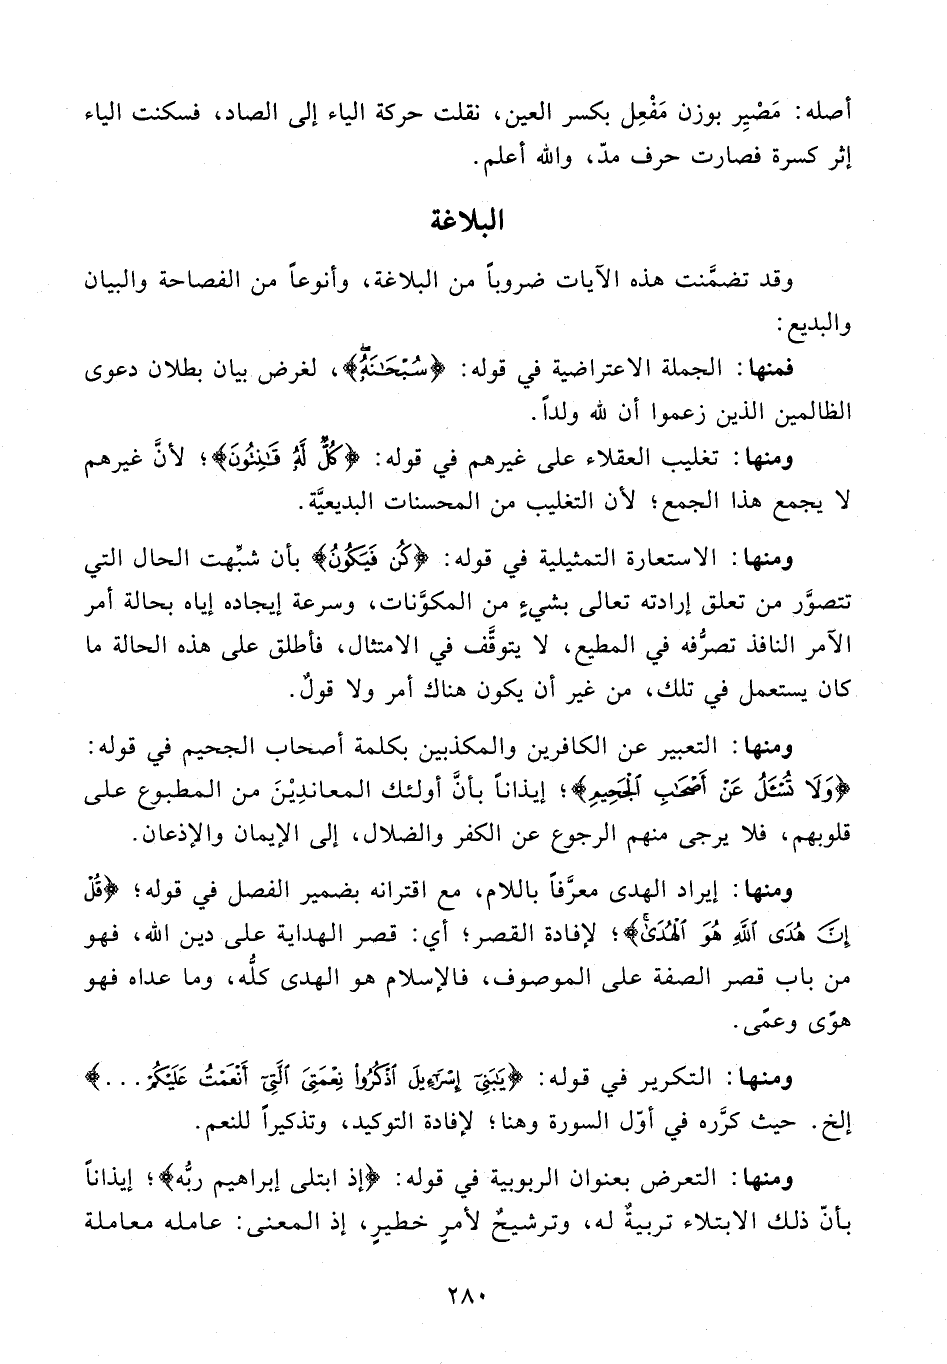 أصله: مَصْيِر بوزن مَفْعِل بكسر العين، نقلت حركة الياء إلى الصاد، فسكنت الياء
إثر كسرة فصارت حرف مدّ، والله أعلم.
البلاغة
وقد تضمَّنت هذه الآيات ضروباً من البلاغة، وأنوعاً من الفصاحة والبيان
والبديع:
فمنها: الجملة الاعتراضية في قوله: ﴿سُبْحَٰنَهُۥۖ﴾، لغرض بيان بطلان دعوى
الظالمين الذين زعموا أن لله ولداً.
ومنها: تغليب العقلاء على غيرهم في قوله: ﴿كُلٌّ لَّهُۥ قَٰنِتُونَ﴾؛ لأنَّ غيرهم
لا يجمع هذا الجمع؛ لأن التغليب من المحسنات البديعيَّة.
ومنها: الاستعارة التمثيلية في قوله: ﴿كُن فَيَكُونُ﴾ بأن شبِّهت الحال التي
تتصوَّر من تعلق إرادته تعالى بشيءٍ من المكوَّنات، وسرعة إيجاده إياه بحالة أمر
الآمر النافذ تصرُّفه في المطيع، لا يتوقَّف في الامتثال، فأطلق على هذه الحالة ما
كان يستعمل في تلك، من غير أن يكون هناك أمر ولا قولٌ.
ومنها: التعبير عن الكافرين والمكذبين بكلمة أصحاب الجحيم في قوله:
﴿وَلَا تُسْـَٔلُ عَنْ أَصْحَٰبِ ٱلْجَحِيمِ﴾؛ إيذاناً بأنَّ أولئك المعاندِيْنَ من المطبوع على
قلوبهم، فلا يرجى منهم الرجوع عن الكفر والضلال، إلى الإيمان والإذعان.
ومنها: إيراد الهدى معرَّفاً باللام، مع اقترانه بضمير الفصل في قوله؛ ﴿قُلْ
إِنَّ هُدَى ٱللَّهِ هُوَ ٱلْهُدَىٰۗ﴾؛ لإفادة القصر؛ أي: قصر الهداية على دين الله، فهو
من باب قصر الصفة على الموصوف، فالإسلام هو الهدى كلُّه، وما عداه فهو
هوًى وعمًى.
ومنها: التكرير في قوله: ﴿يَٰبَنِىٓ إِسْرَٰٓءِيلَ ٱذْكُرُوا۟ نِعْمَتِىَ ٱلَّتِىٓ أَنْعَمْتُ عَلَيْكُمْ...﴾
إلخ. حيث كرَّره في أوّل السورة وهنا؛ لإفادة التوكيد، وتذكيراً للنعم.
ومنها: التعرض بعنوان الربوبية في قوله: ﴿إذ ابتلى إبراهيم ربُّه﴾؛ إيذاناً
بأنّ ذلك الابتلاء تربيةٌ له، وترشيحٌ لأمرٍ خطيرٍ، إذ المعنى: عامله معاملة
٢٨٠